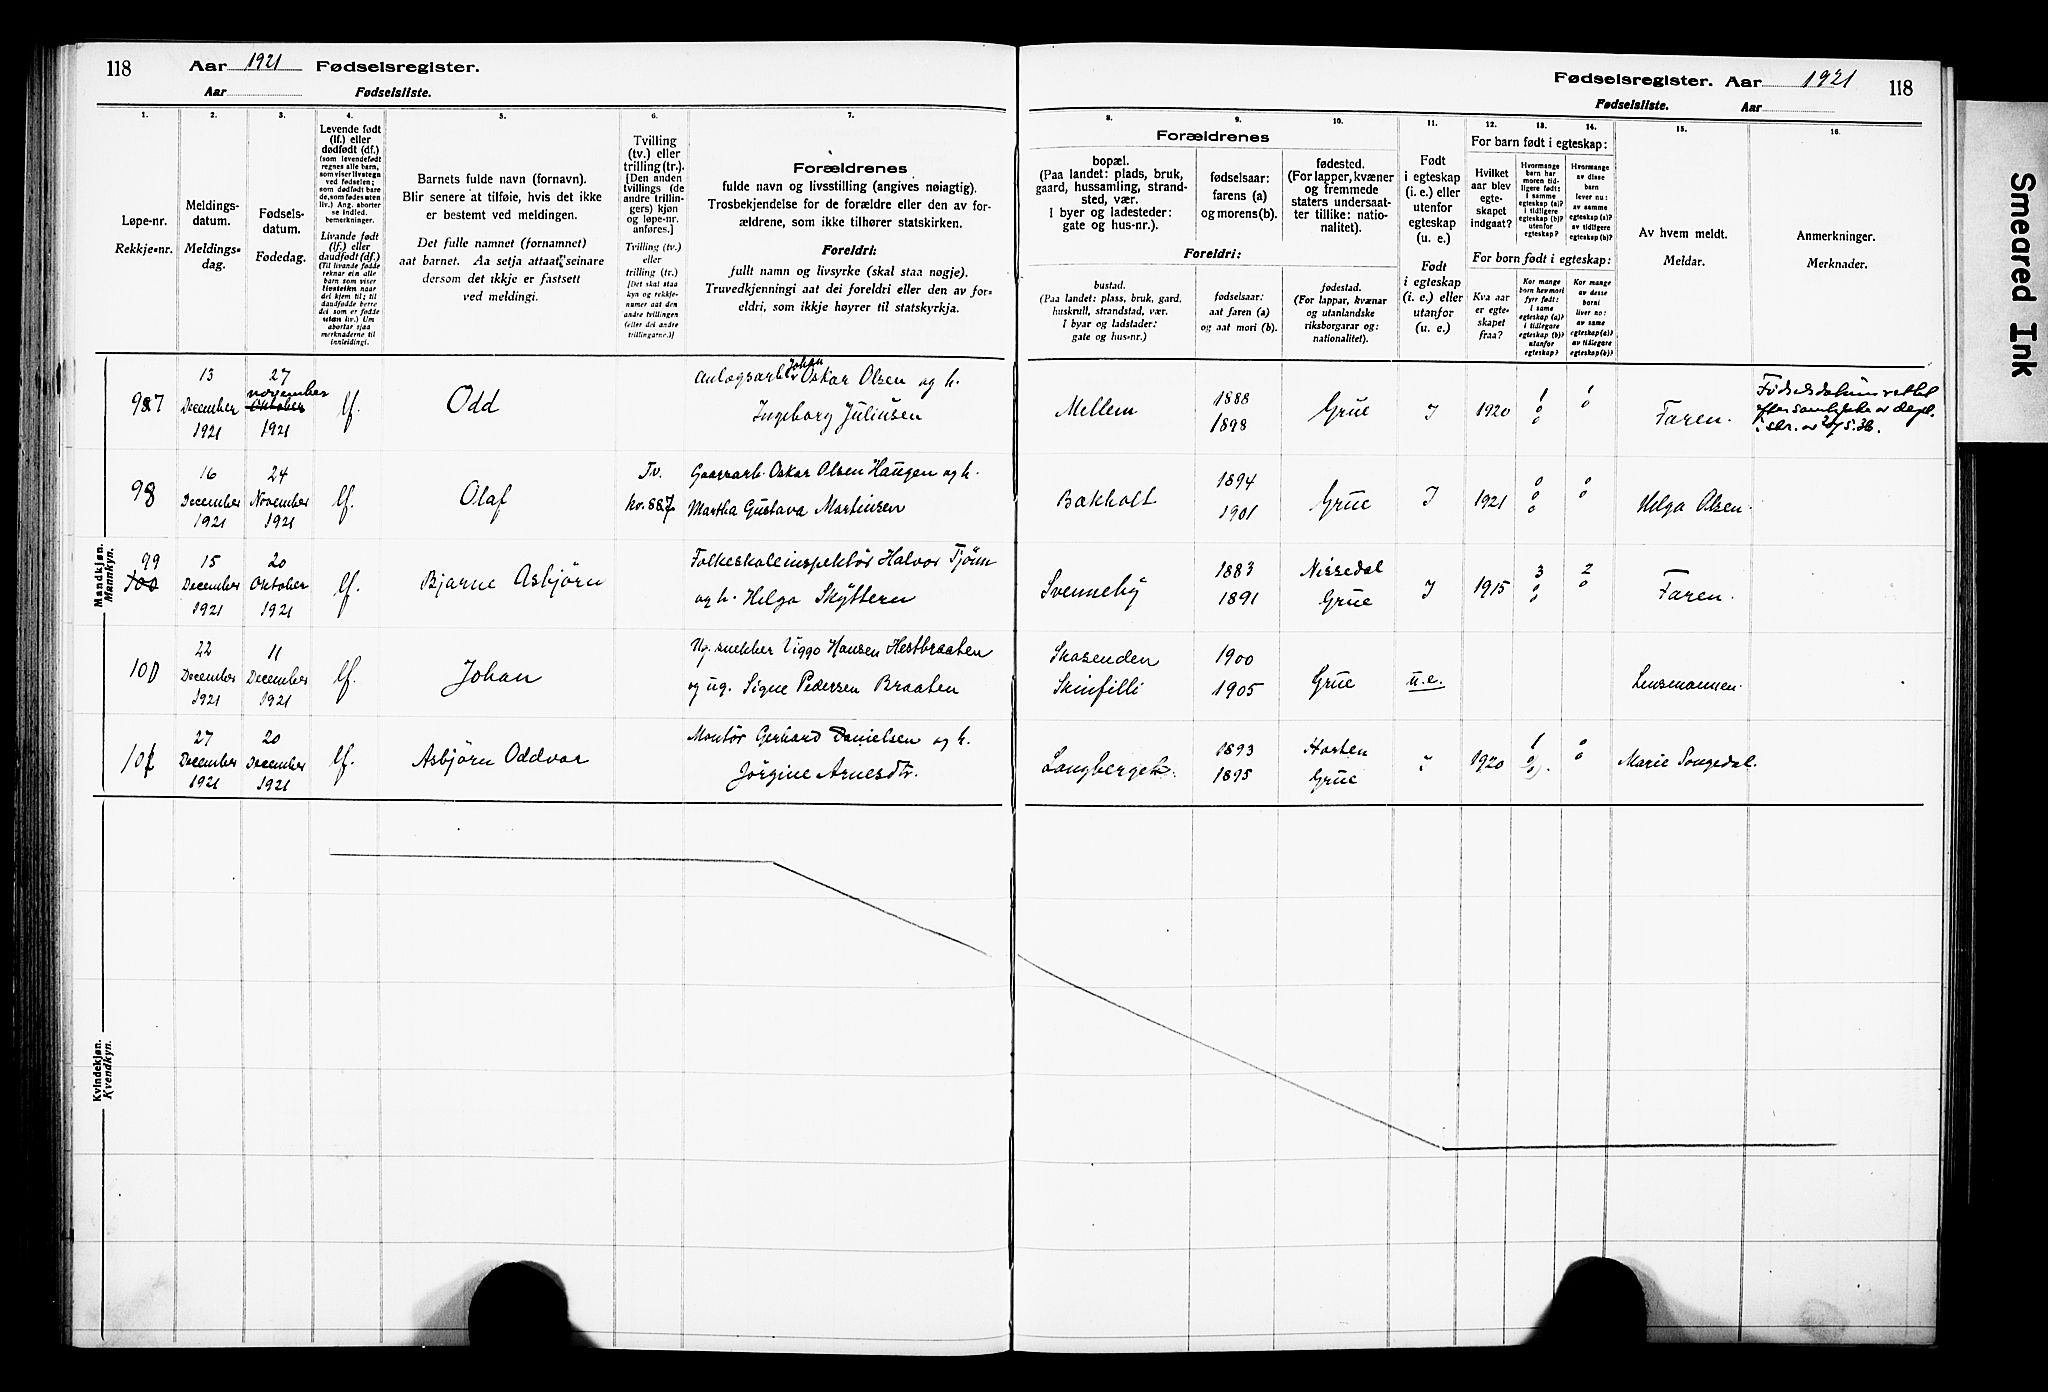 118 Aar 1921 Fødselsregister.
Aar Fødselsliste.
Fødselsregister. Aar 1921 118
Fødselsliste. Aar
Smeared Ink
1. 2. 3. 4. 5. 6. 7.
Løpe-nr.
Rekkje-nr.
Meldings-
datum.
Meldings-
dag.
Fødsels-
datum.
Fødedag.
Levende født
(lf.) eller
dødfødt (df.)
(som levendefødt
regnes alle barn,
som viser livstegn
ved fødselen;
som dødfødt bare
de, som fødes uten
liv.) Ang. aborter
se indled.
bemerkninger.
Livande født
(lf.) eller
daudfødt (df.)
(Til livande fødde
reknar ein alle
barn som viser
livsteikn naar
dei kjem til; til
daudfødde berre
dei som er fødde
utan liv.) Um
abortar sjaa
merknaderne til
innleidingi.
Barnets fulde navn (fornavn).
Blir senere at tilføie, hvis det ikke
er bestemt ved meldingen.
Det fulle namnet (fornamnet)
aat barnet. Aa setja attaat seinare
dersom det ikkje er fastsett
ved meldingi.
Tvilling
(tv.) eller
trilling (tr.).
[Den anden
tvillings (de
andre trillin-
gers) kjøn
og løpe-nr.
anføres.]
Tvilling (tv.)
eller
trilling (tr.)
[Det skal staa
kyn og rekkje-
numer aat den
andre tvillingen
(eller dei andre
trillingarne.)]
Forældrenes
fulde navn og livsstilling (angives nøiagtig).
Trosbekjendelse for de forældre eller den av for-
ældrene, som ikke tilhører statskirken.
Foreldri:
fullt namn og livsyrke (skal staa nøgje).
Truvedkjenningi aat dei foreldri eller den av for-
eldri, som ikkje høyrer til statskyrkja.
8. 9. 10. 11. 12. 13. 14. 15. 16.
Forældrenes
bopæl.
(Paa landet: plads, bruk,
gaard, hussamling, strand-
sted, vær.
I byer og ladesteder:
gate og hus-nr.).
fødselsaar:
farens (a)
og morens (b).
fødested.
(For lapper, kvæner
og fremmede
staters undersaat-
ter tillike: natio-
nalitet).
Foreldri:
bustad.
(Paa landet: plass, bruk, gard,
huskrull, strandstad, vær.
I byar og ladstader:
gate og hus-nr.)
fødselsaar:
aat faren (a)
og aat mori (b).
fødestad.
(For lappar, kvænar
og utanlandske
riksborgarar og:
nationalitet).
Født
i egteskap
(i. e.) eller
utenfor
egteskap
(u. e.)
Født
i egteskap
(i. e.) eller
utanfor
(u. e.)
For barn født i egteskap:
Hvilket
aar blev
egte-
skapet
indgaat?
Hvormange
barn har
moren tid-
ligere født:
I samme
egteskap (a)?
I tidligere
egteskap (b)?
utenfor
egteskap?
Hvormange
av disse
barn
lever nu:
av samme
egteskap (a)?
av tidligere
egteskap (b)?
For born født i egteskap:
Kva aar
er egte-
skapet
fraa?
Kor mange
born hev mori
fyrr født:
I same
egteskap (a)?
I tidlegare
egteskap (b)?
utanfor
egteskap?
Kor mange
av desse
borni
liver no:
av same
egteskap (a)?
av tidlegare
egteskap (b)?
Av hvem meldt.
Meldar.
Anmerkninger.
Merknader.
Mandkjøn.
Mannkyn.
987 13 December 1921 27 november Oktober 1921 lf. Odd Anlægsarb. Johan Oskar Olsen og h.
Ingeborg Juliusen
Mellem 1888 1898 Grue I 1920 1 0 0 1 0 Faren. Fødselsdatum rettet
efter samtykke av dept.
98 16 December 1921 24 November 1921 lf. Olaf Tv. kv. 887 Gaardsarb. Oskar Olsen Haugen og h.
Martha Gustava Martinsen
Bakholt 1894 1901 Grue I 1921 0 0 0 0 0 Helga Olsen.
99 100 15 December 1921 20 Oktober 1921 lf. Bjarne Asbjörn Folkeskoleinspektör Halvor Tjönn
og h. Helga Skyttern
Svenneby 1883 1891 Nissedal Grue I 1915 3 0 0 2 0 Faren.
100 22 December 1921 11 December 1921 lf. Johan Ug. snekker Viggo Hansen Hestbraaten
og ug. Signe Pedersen Braaten
Skasenden Skinfilli 1900 1905 Grue u.e. Lensmannen.
101 27 December 1921 20 December 1921 lf. Asbjörn Oddvar Montör Gerhard Danielsen og h.
Jörgine Arnesdtr.
Langberget. 1893 1895 Horten Grue " 1920 1 0 0 0 Marie Songedal.
Kvindekjøn.
Kvendkyn.